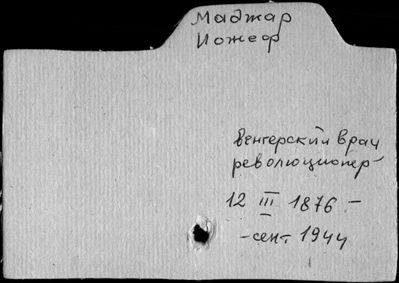 Маджар
Йожеф
Венгерский врач
революционер
12 III 1876 –
– сент. 1944